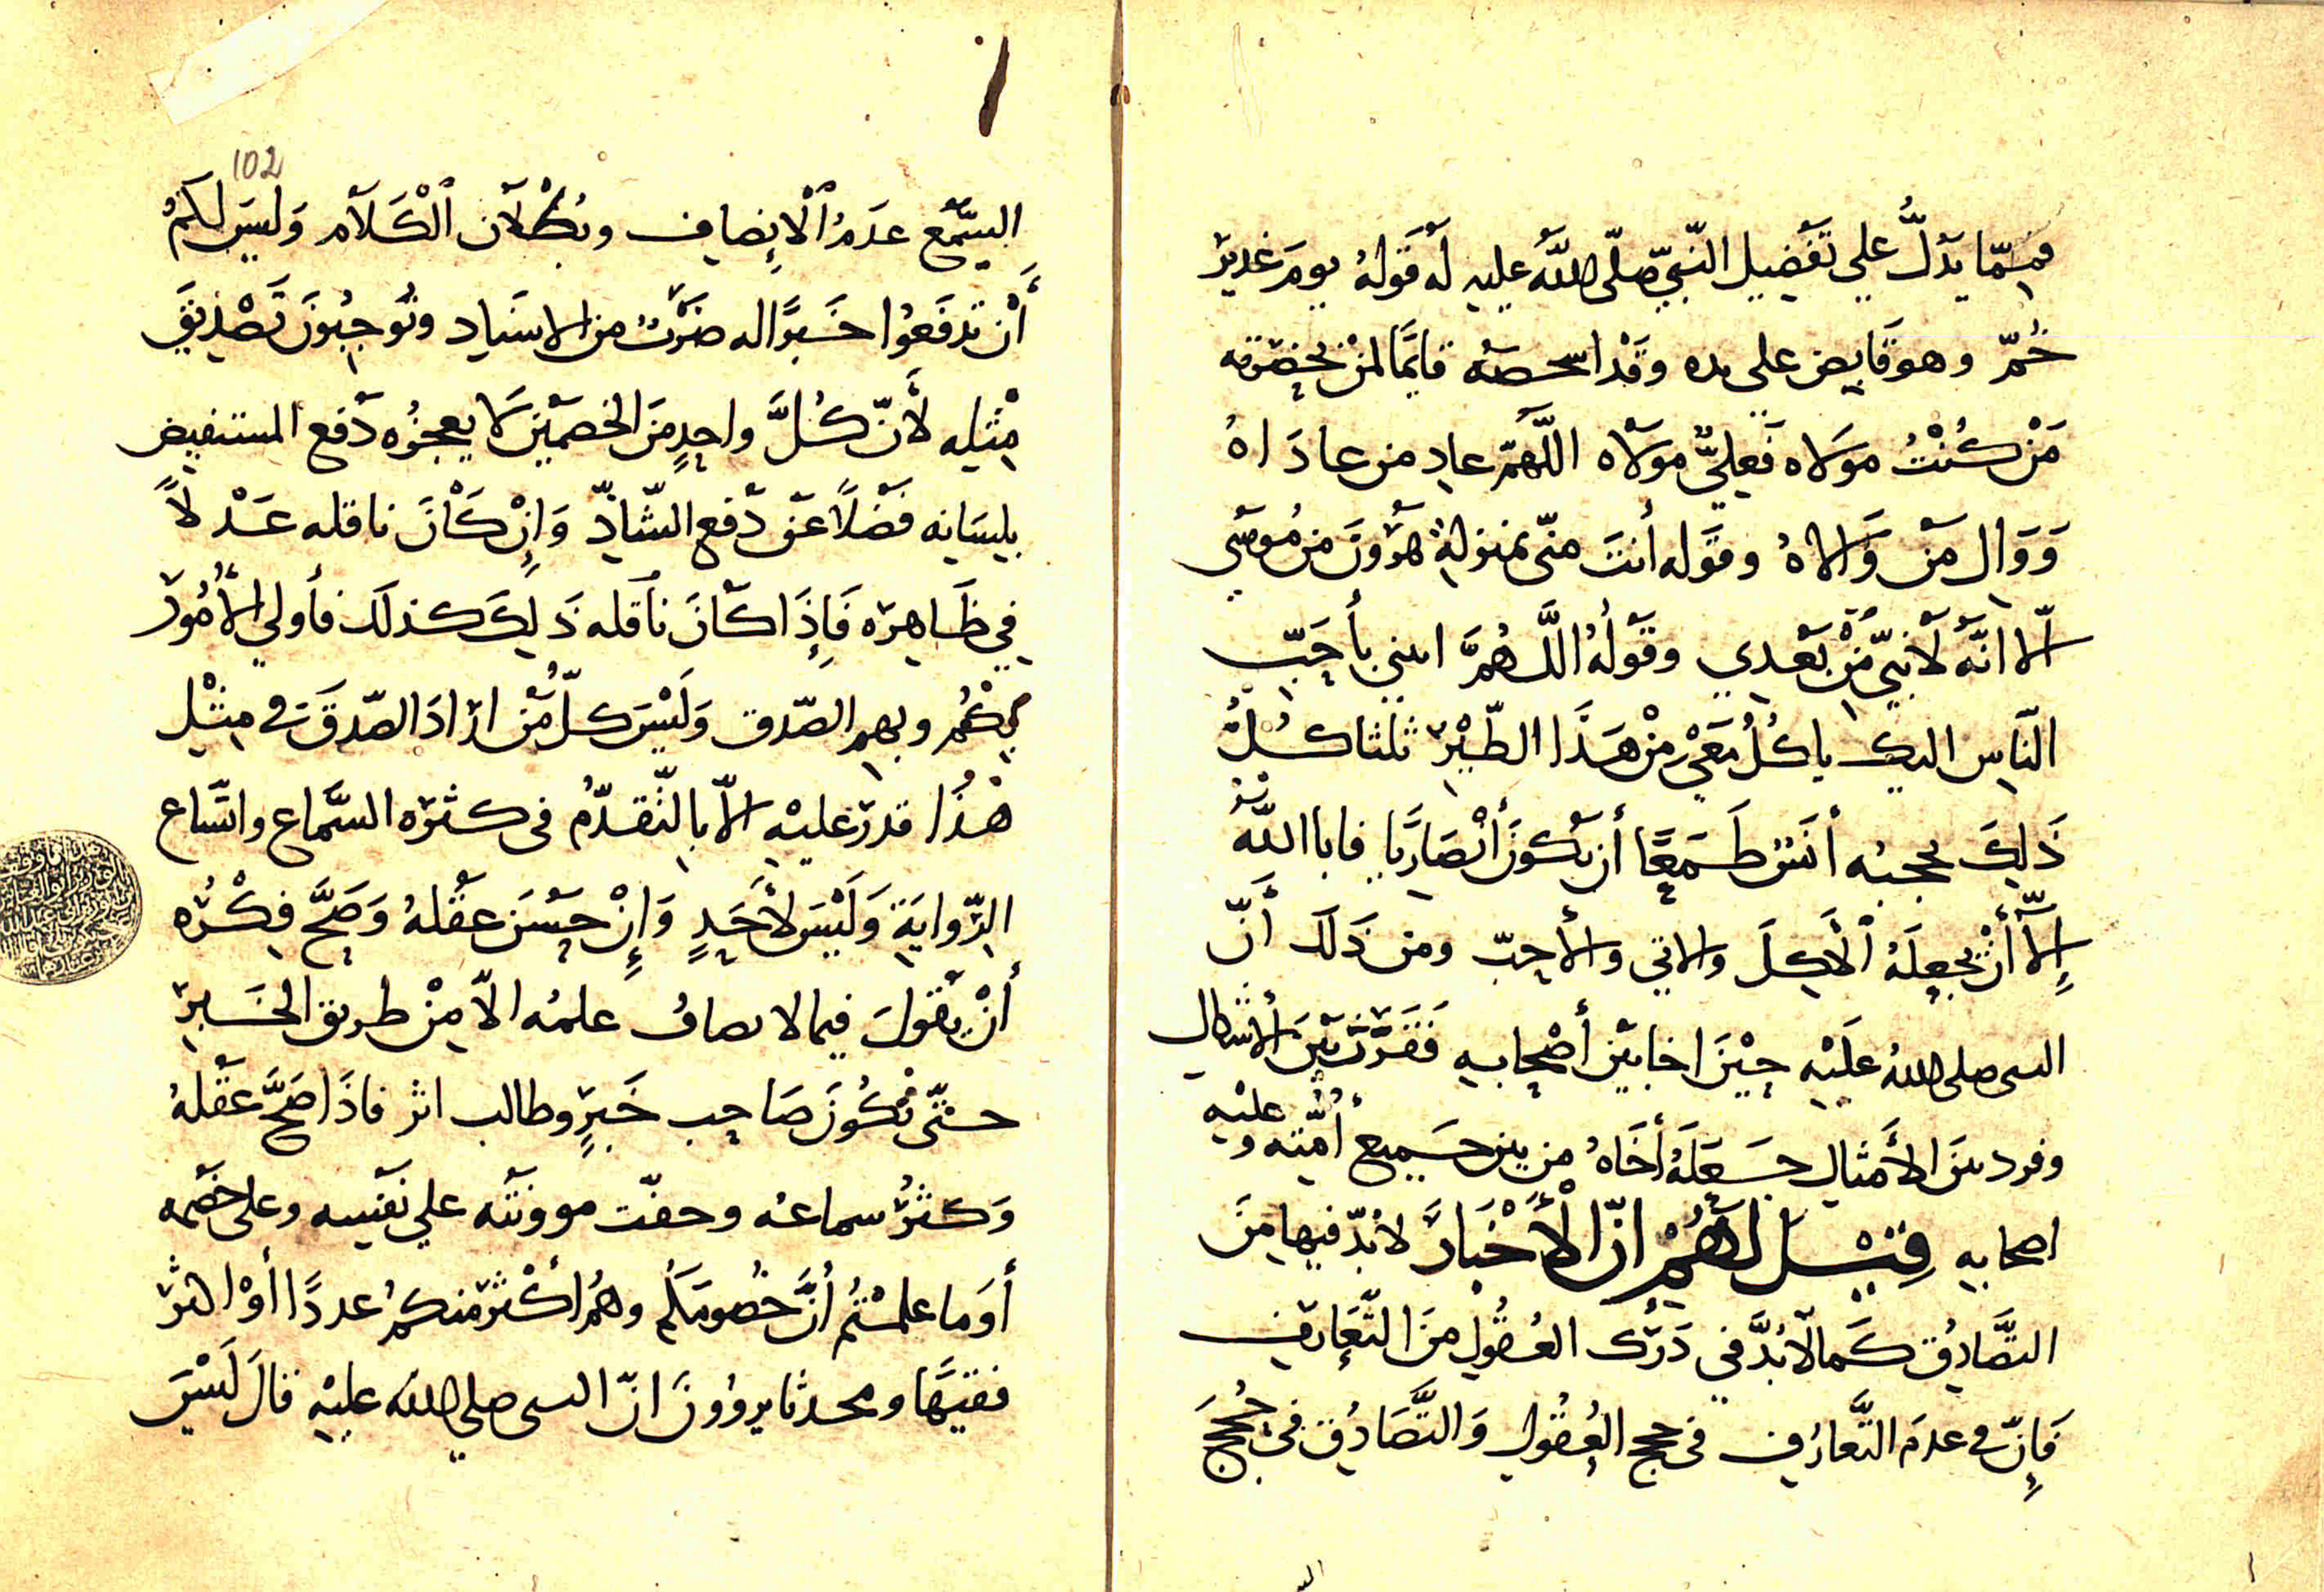 فممّا يدلُّ علي تفضيل النّبيّ صلّى الله عليه له قوله يوم غدير
خُمّ وهو قابض على يده وقد اسخصه قايمًا لمن بحضرته
مَنْ كُنْتُ مولاه فعليّ مولاه اللّهمّ عادِ من عادَاهُ
وَوَالِ من وَالاهُ وقوله أنتَ منّى بمنزلةِ هرُونَ من مُوسَى
الّا انّه لا نبيّ مِنْ بَعْدي وقوله اللَّهُمَّ ايتني بأَحَبّ
النّاس اليك ياكُلُ مَعِي مِنْ هَذَا الطّيْرِ ثلثا كُلُّ
ذَلِكَ يحجبه أنَس طَمَعًا أن يكونَ أنْصَاريًا فابا الله
إلّا أنْ يجعلَهُ الآكِلَ والاتي والأحبّ ومن ذَلكَ أَنّ
النبى صلى الله عليْهِ حِيْنَ اخا بَيْنَ أصْحابهِ فَقَرَّنَ بَيْنَ الأشكال
وقرن بينَ الأَمثالِ جَعَلَهُ أَخَاهُ من بين جميع أمّته وعليْهِ
اصحابهِ قِيْلَ لَهُمْ انّ الأَخْبَارَ لابُدّ فيها مِنَ
التَّصَادُقِ كَما لابُدَّ في دَرَكِ العُقُولِ منَ التَّعَارُفِ
فَإِنّ في عدمَ التَّعارُفِ فى حجج العُقُولِ وَالتَّصَادُقِ فى حُجَجِ
102
السَّمْعِ عَدَمُ الْإنصافِ وبُطْلان الْكَلَامِ وَليسَ لكمُ
أَنْ تدفَعُوا خَبرًا له ضَرْبٌ من الاسنادِ وتُوجِبُونَ تَصْدِيْقَ
مِثْلِه لأَنّ كُلَّ واحِدٍ مِنَ الخصمَيْنِ لا يعجزُه دَفع المستفيضِ
بلِسَانِه فَضْلاً عَنْ دَفْعِ الشّاذِّ وَإِنْ كَانَ ناقله عَدْلاً
فِي ظَاهِرِه فَإِذَا كَانَ نَاقله ذَلِكَ كذلك فأولي الأُمُورِ
بِكُمْ وبهم الصّدق وَلَيْسَ كلّ مَنْ ارَادَ الصّدقَ فى مِثْلِ
هذا قدرَ عليْهِ الّا بالتّقدّمُ فى كثرَه السَّماع واتّساع
الرّوايَةِ وَلَيْسَ لأَحَدٍ وَإِنْ حَسُنَ عقْلهُ وَصَحَّ فِكْرُه
أَنْ يَقُولَ فيما لا يصابُ علمُه الّا مِنْ طريق الخَبرِ
حتّى يَكُونَ صَاحِب خَبَرٍ وطالب اثر فاذَا صَحَّ عَقْلهُ
وَكثُرَ سماعهُ وخفّت موونَته علي نَفسِه وعلى خصْمه
أوَما علمْتُم أَنَّ خصُومَكُم وهُم أكْثَر منكمُ عددًا أوْ اكثر
فقيهًا ومحدثا يروُونَ انّ النبى صلى الله عليْهِ قالَ لَيْسَ